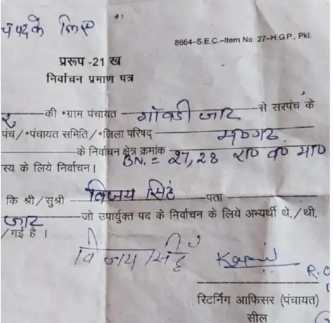 पंच पद के लिए
8664-S.E.C.-Item No 27-H.G.P., Pkl.
प्ररूप -21 ख
निर्वाचन प्रमाण पत्र
की *ग्राम पंचायत गाँवडी जाट से सरपंच के
पंच/*पंचायत समिति/*जिला परिषद्
के निर्वाचन क्षेत्र क्रमांक
B.N. = 27,28
स्य के लिये निर्वाचन।
कि श्री/सुश्री विजय सिंह पता
जाट जो उपर्युक्त पद के निर्वाचन के लिये अभ्यर्थी थे,/थी,
/गई है।
विजय सिंह
रिटर्निंग आफिसर (पंचायत)
सील